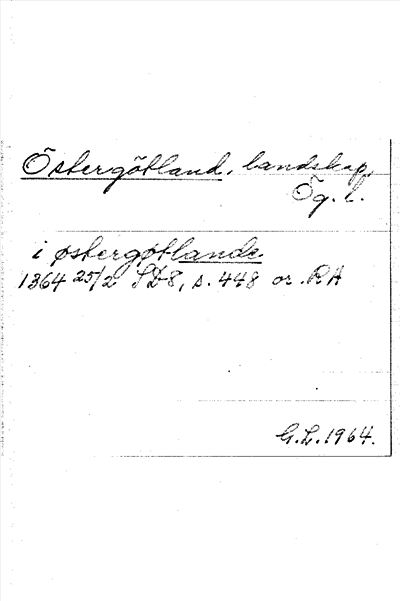 Östergötland, landskap,
Ög. l.
i østergøtlande
1364 25/2 SD8, s. 448 or. RA
G.L. 1964.